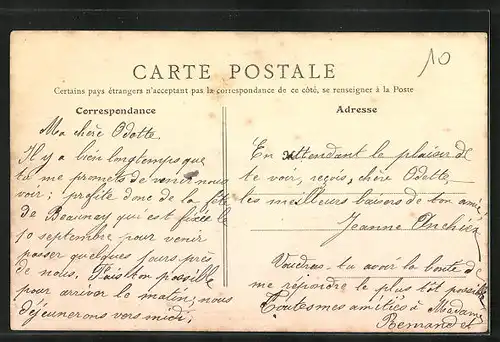 10
CARTE POSTALE
Certains pays étrangers n'acceptant pas la correspondance de ce côté, se renseigner à la Poste
Correspondance
Ma chère Odette
Il y a bien longtemps que
tu me promets de venir nous
voir; profite donc de la fête
de Beaunay qui est fixée le
10 septembre pour venir
passer quelques jours près
de nous. Fais ton possible
pour arriver le matin; nous
déjeunerons vers midi;
Adresse
En attendant le plaisir de
te voir, reçois, chère Odette,
les meilleurs baisers de ton amie,
Jeanne
Voudras-tu avoir la bonté de
me répondre le plus tôt possible
Toutes mes amitiés à Madame